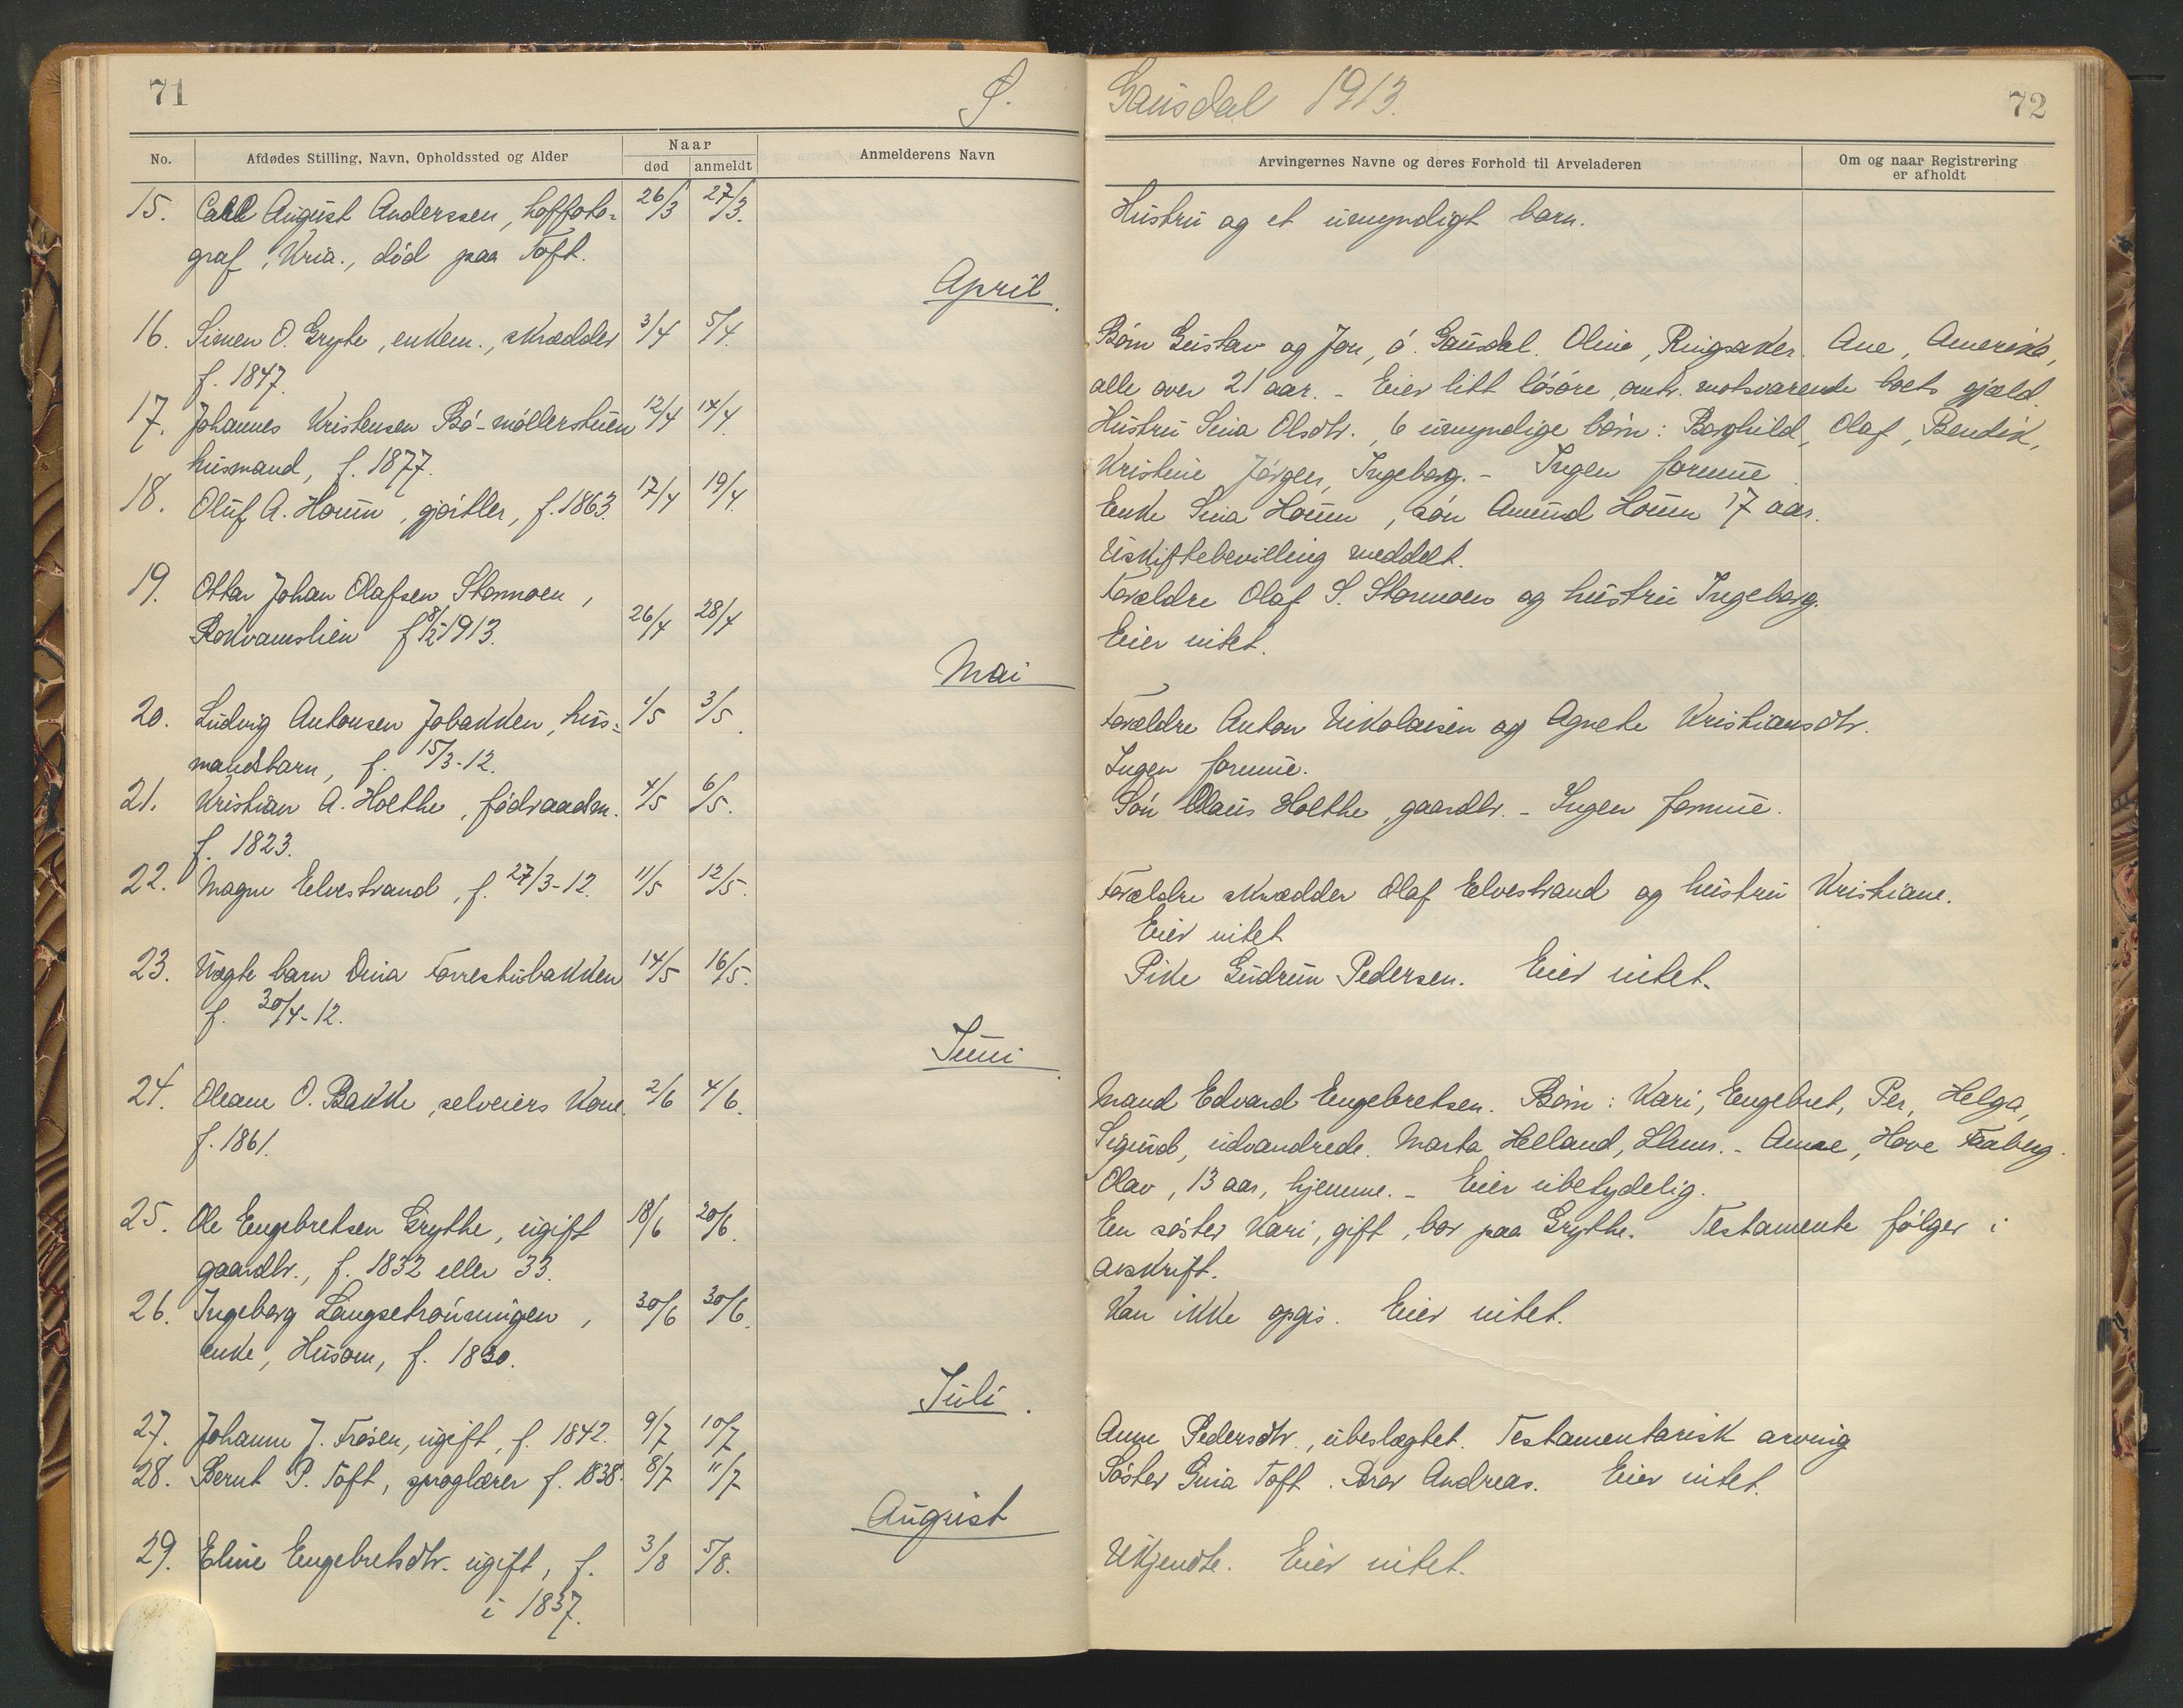 71
Ø.
No.
Afdødes Stilling, Navn, Opholdssted og Alder
Naar
død
anmeldt
Anmelderens Navn
15. Carl August Anderssen, hoffoto-
graf, Kria., död paa Toft. 26/3 27/3.
April
16. Simen O. Gryte, enkem., skrædder 3/4 5/4.
f. 1847.
17. Johannes Kristensen Bö-möllerstuen 12/4 14/4.
husmand, f. 1877.
18. Oluf A. Houm, gjörtler, f. 1863. 17/4 19/4.
19. Ottar Johan Olafsen Stormoen,
Rokvamslien f 8/2 1913. 26/4 28/4
Mai
20. Ludvig Antonsen Jobakken, hus- 1/5 3/5.
mandsbarn, f. 15/3-12.
21. Kristian A. Holthe, födraadsm. 4/5 6/5.
f. 1823.
22. Magne Elvestrand, f. 27/3-12. 11/5 12/5.
23. Uægte barn Dina Forrestubakken 14/5 16/5.
f. 30/4-12.
Juni
24. Oleane O. Bakke, selveiers kone. 2/6 4/6.
f. 1861.
25. Ole Engebretsen Grythe, ugift 18/6 20/6.
gaardbr., f. 1832 eller 33.
26. Ingeborg Langsetrönningen, 30/6 30/6.
enke, Husom, f. 1830.
Juli.
27. Johanne J. Frösen, ugift, f. 1842. 9/7 10/7
28. Bernt P. Toft, sproglærer f. 1838. 8/7 11/7
August
29. Eline Engebretsdtr. ugift, f. 3/8 5/8.
i 1837.
Gausdal 1913.
72
Arvingernes Navne og deres Forhold til Arveladeren
Om og naar Registrering
er afholdt
Hustru og et umyndigt barn.
Börn Gustav og Jon, ö. Gausdal. Oline, Ringsaker. Ane, Amerika,
alle over 21 aar. - Eier litt lösöre, omtr. motsvarende boets gjæld.
Hustru Sina Olsdtr., 6 umyndige börn: Borghild, Olaf, Bendik,
Kristine, Jörgen, Ingeborg. - Ingen formue.
Enke Sina Houm, sön Amund Houm 17 aar.
Uskiftebevilling meddelt.
Forældre Olaf S. Stormoen og hustru Ingeborg.
Eier intet.
Forældre Anton Nikolaisen og Agnete Kristiansdtr.
Ingen formue.
Sön Olaus Holthe, gaardbr. - Ingen formue.
Forældre skrædder Olaf Elvestrand og hustru Kristiane.
Eier intet
Pike Gudrun Pedersen. Eier intet.
Mand Edvard Engebretsen. Börn: Kari, Engebret, Per, Helga,
Sigurd, udvandrede. Marta Helland, Lhmr. - Anne, Hove Faaberg.
Olav, 13 aar, hjemme. - Eier ubetydelig.
En söster Kari, gift, bor paa Grythe. Testamente fölger i
avskrift.
Kan ikke opgis. Eier intet.
Anne Pedersdtr., ubeslægtet. Testamentarisk arving
Söster Gina Toft. Bror Andreas. Eier intet.
Ukjendte. Eier intet.